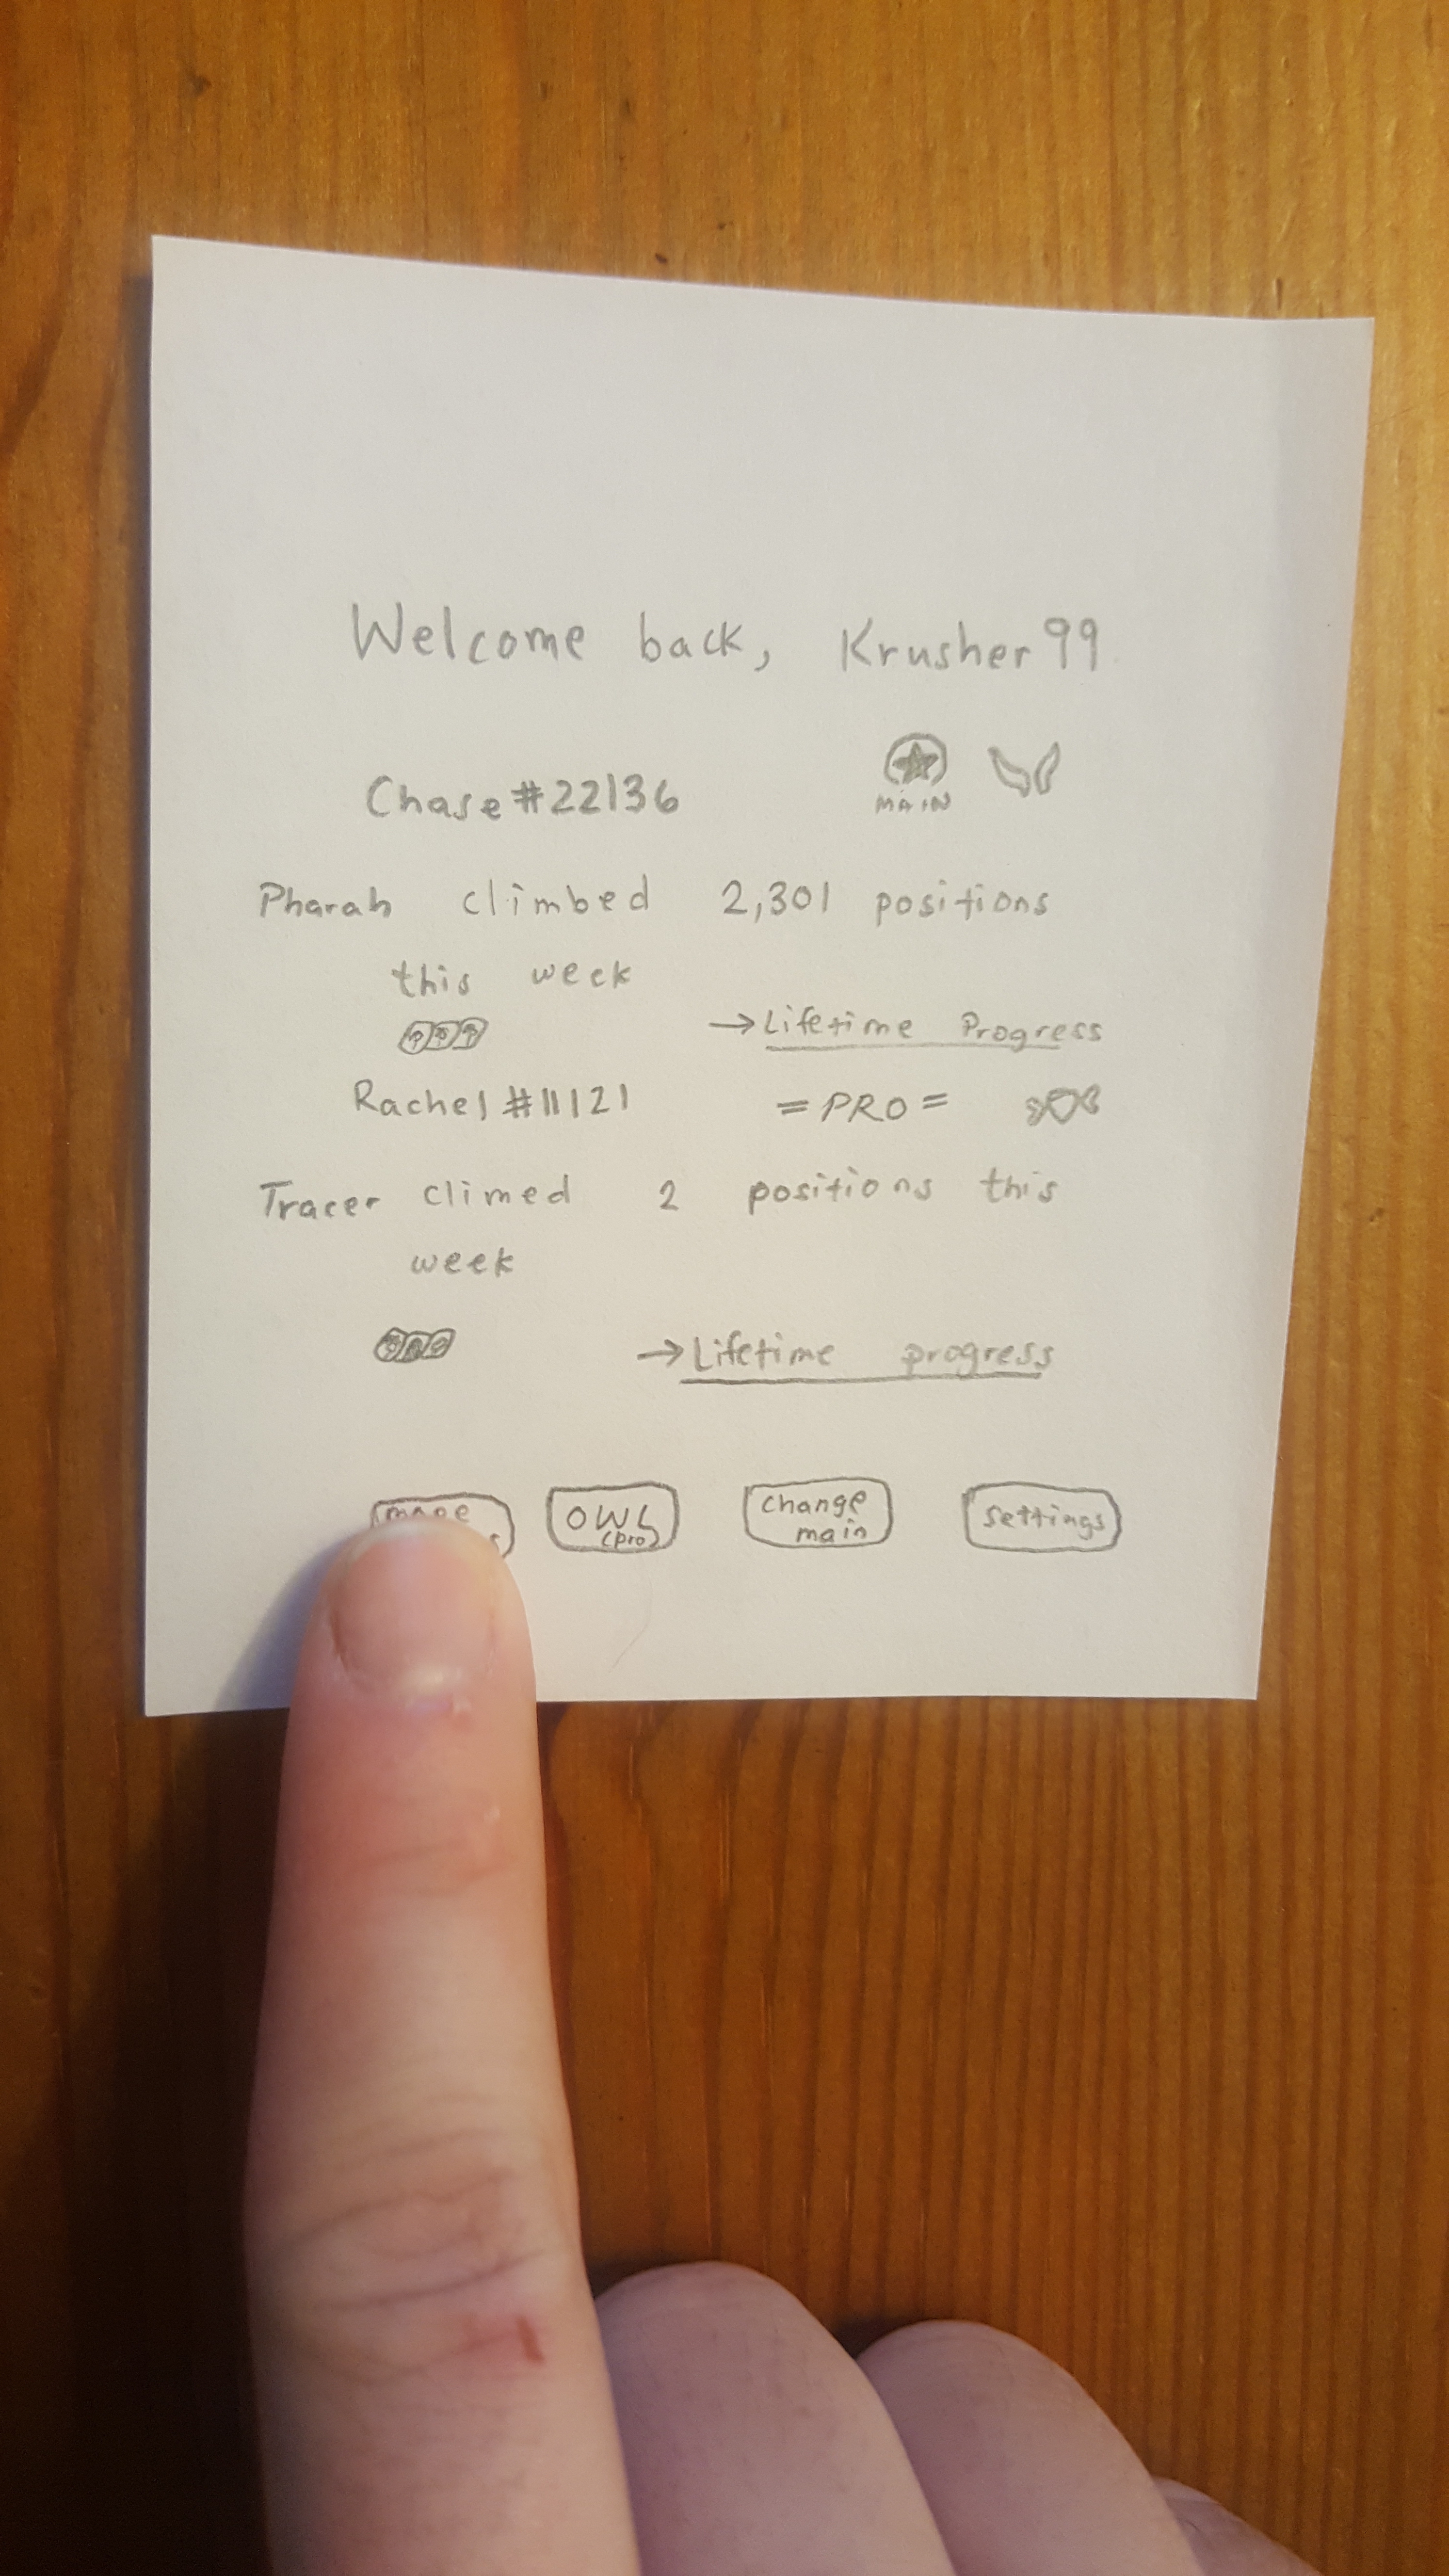 Welcome back, Krusher99
Chase#22136
MAIN
Pharah climbed 2,301 positions
this week
→Lifetime Progress
Rachel#11121 =PRO=
Tracer climed 2 positions this
week
→Lifetime progress
OWL
(pro)
change
main
settings